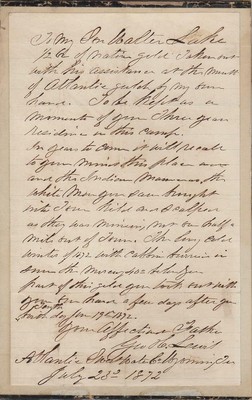 To My Son Walter Lake
½ Oz of native gold Taken out
with his assistance at the mouth
of Atlantic gulch by my own
hand. To be kept as a
momento of your Three years
residence in this camp.
In years to come it will recall
to your mind this place
and the Indian the
White Men you saw brought
into Town Killed and Scalped
as they was mining, not one half
mile out of Town. The very cold
winter of 1872 with
snow the Mercury
part of this gold you took out with
your own hands a few days after your
birth day Jan 19th 1872.
Your Affectionate Father
Geo H.
Atlantic Wyoming Ter
July 23d 1872